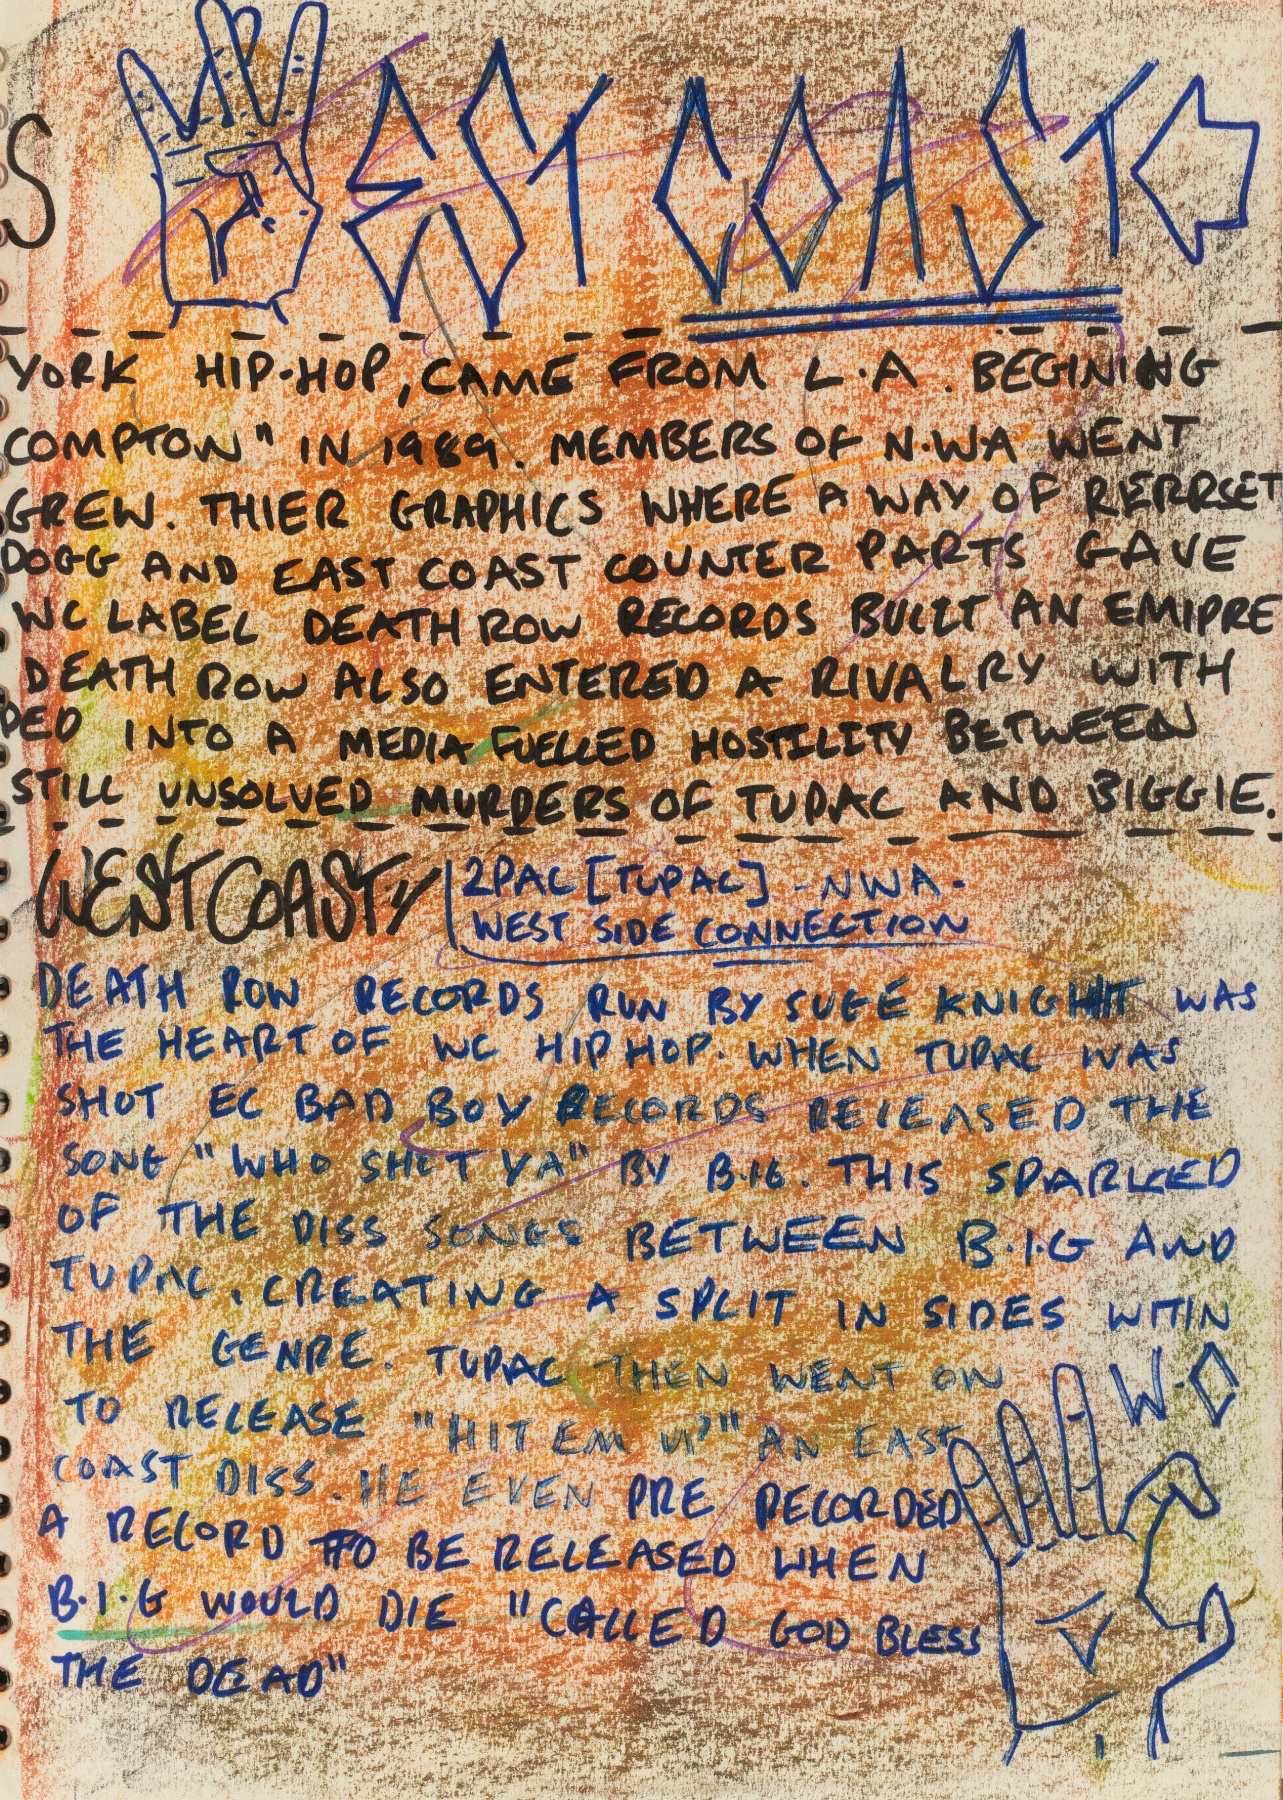 S WEST COAST
YORK HIP-HOP, CAME FROM L.A. BEGINING
COMPTON" IN 1989. MEMBERS OF N.WA WENT
GREW. THIER GRAPHICS WHERE A WAY OF RERRSET
DOGG AND EAST COAST COUNTER PARTS GAVE
WC LABEL DEATH ROW RECORDS BUILT AN EMIPRE
DEATH ROW ALSO ENTERED A RIVALRY WITH
DED INTO A MEDIA FUELLED HOSTILITY BETWEEN
STILL UNSOLVED MURDERS OF TUPAC AND BIGGIE.
WEST COAST
2PAC [TUPAC] - NWA -
WEST SIDE CONNECTION
DEATH ROW RECORDS RUN BY SUGE KNIGHT WAS
THE HEART OF WC HIP HOP. WHEN TUPAC WAS
SHOT EC BAD BOY RECORDS RELEASED THE
SONG "WHO SHOT YA" BY B.IG. THIS SPARKED
OF THE DISS SONGS BETWEEN B.I.G AND
TUPAC, CREATING A SPLIT IN SIDES WITIN
THE GENRE. TUPAC THEN WENT ON
TO RELEASE "HIT EM UP" AN EAST
COAST DISS. HE EVEN PRE RECORDED
A RECORD TO BE RELEASED WHEN
B.I.G WOULD DIE "CALLED GOD BLESS
THE DEAD"
W.O